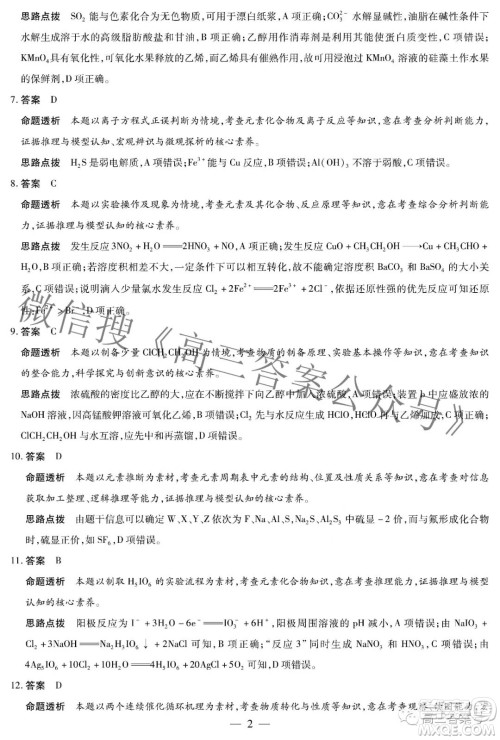 思路点拨 SO₂ 能与色素化合为无色物质,可用于漂白纸浆,A 项错误;CO₃²⁻ 水解显碱性,油脂在碱性条件下
水解生成溶于水的高级脂肪酸盐和甘油,B 项错误;乙醇用作消毒剂是利用其能使蛋白质变性,C 项错误;
KMnO₄ 具有氧化性,可氧化水果释放的乙烯,而乙烯具有催熟作用,故可用浸泡过 KMnO₄ 溶液的硅藻土作水果
的保鲜剂,D 项正确。
7. 答案 D
命题透析 本题以离子方程式正误判断为情境,考查元素化合物及离子反应等知识,意在考查分析判断能力,
证据推理与模型认知、宏观辨识与微观探析的核心素养。
思路点拨 H₂S 是弱电解质,A 项错误;Fe³⁺能与 Cu 反应,B 项错误;Al(OH)₃ 不溶于弱酸,C 项错误。
8. 答案 C
命题透析 本题以实验操作及现象为情境,考查元素及其化合物、反应原理等知识,意在考查综合分析判断能
力,证据推理与模型认知的核心素养。
思路点拨 发生反应 3NO₂ + H₂O══2HNO₃ + NO,A 项错误;发生反应 CuO + CH₃CH₂OH ⟶Cu + CH₃CHO +
H₂O,B 项错误;若溶度积相差不大,一定条件下可以相互转化,故不能确定溶度积 BaCO₃ 和 BaSO₄ 的大小关
系,C 项错误;说明滴入少量氯水发生反应 Cl₂ + 2Fe²⁺══2Fe³⁺ + 2Cl⁻,依据还原性强的优先反应可知还原
性:Fe²⁺ > Br⁻,D 项正确。
9. 答案 C
命题透析 本题以制备少量 ClCH₂CH₂OH 为情境,考查物质的制备原理、实验基本操作等知识,意在考查知识
的整合能力,科学探究与创新意识的核心素养。
思路点拨 浓硫酸的密度比乙醇的大,应在不断搅拌下向乙醇中加入浓硫酸,A 项错误;装置 b 中应盛放浓的
NaOH 溶液,因高锰酸钾溶液可氧化乙烯,B 项错误;Cl₂ 先与水反应生成 HClO,HClO 再与乙烯加成,C 正确;
ClCH₂CH₂OH 与水互溶,应先中和再蒸馏,D 项错误。
10. 答案 D
命题透析 本题以元素推断为素材,考查元素周期表中元素的结构、位置及性质关系等知识,意在考查对信息
获取加工整理、逻辑推理等能力,证据推理与模型认知的核心素养。
思路点拨 由题干信息可以确定 W、X、Y、Z 依次为 F、Na、Al、S,Na₂S、Al₂S₃ 中硫显 -2 价,而与氟形成化合物
时,硫显正价,如 SF₆,D 项错误。
11. 答案 B
命题透析 本题以制取 H₅IO₆ 的实验流程为素材,考查元素化合物知识,意在考查推理能力,证据推理与模型
认知的核心素养。
思路点拨 阳极反应为 I⁻ + 3H₂O - 6e⁻══IO₃⁻ + 6H⁺,阳极周围溶液的 pH 减小,A 项错误;由 NaIO₃ +
Cl₂ + 3NaOH══Na₂H₃IO₆↓ + 2NaCl 可知,B 项正确;“反应 3”同时生成 NaNO₃ 和 HNO₃,C 项错误;由
4Ag₅IO₆ + 10Cl₂ + 10H₂O══4H₅IO₆ + 20AgCl + 5O₂ 可知,D 项错误。
12. 答案 D
命题透析 本题以两个连续催化循环机理为素材,考查物质转化与性质等知识,意在考查
— 2 —
微信搜《高三答案公众号》